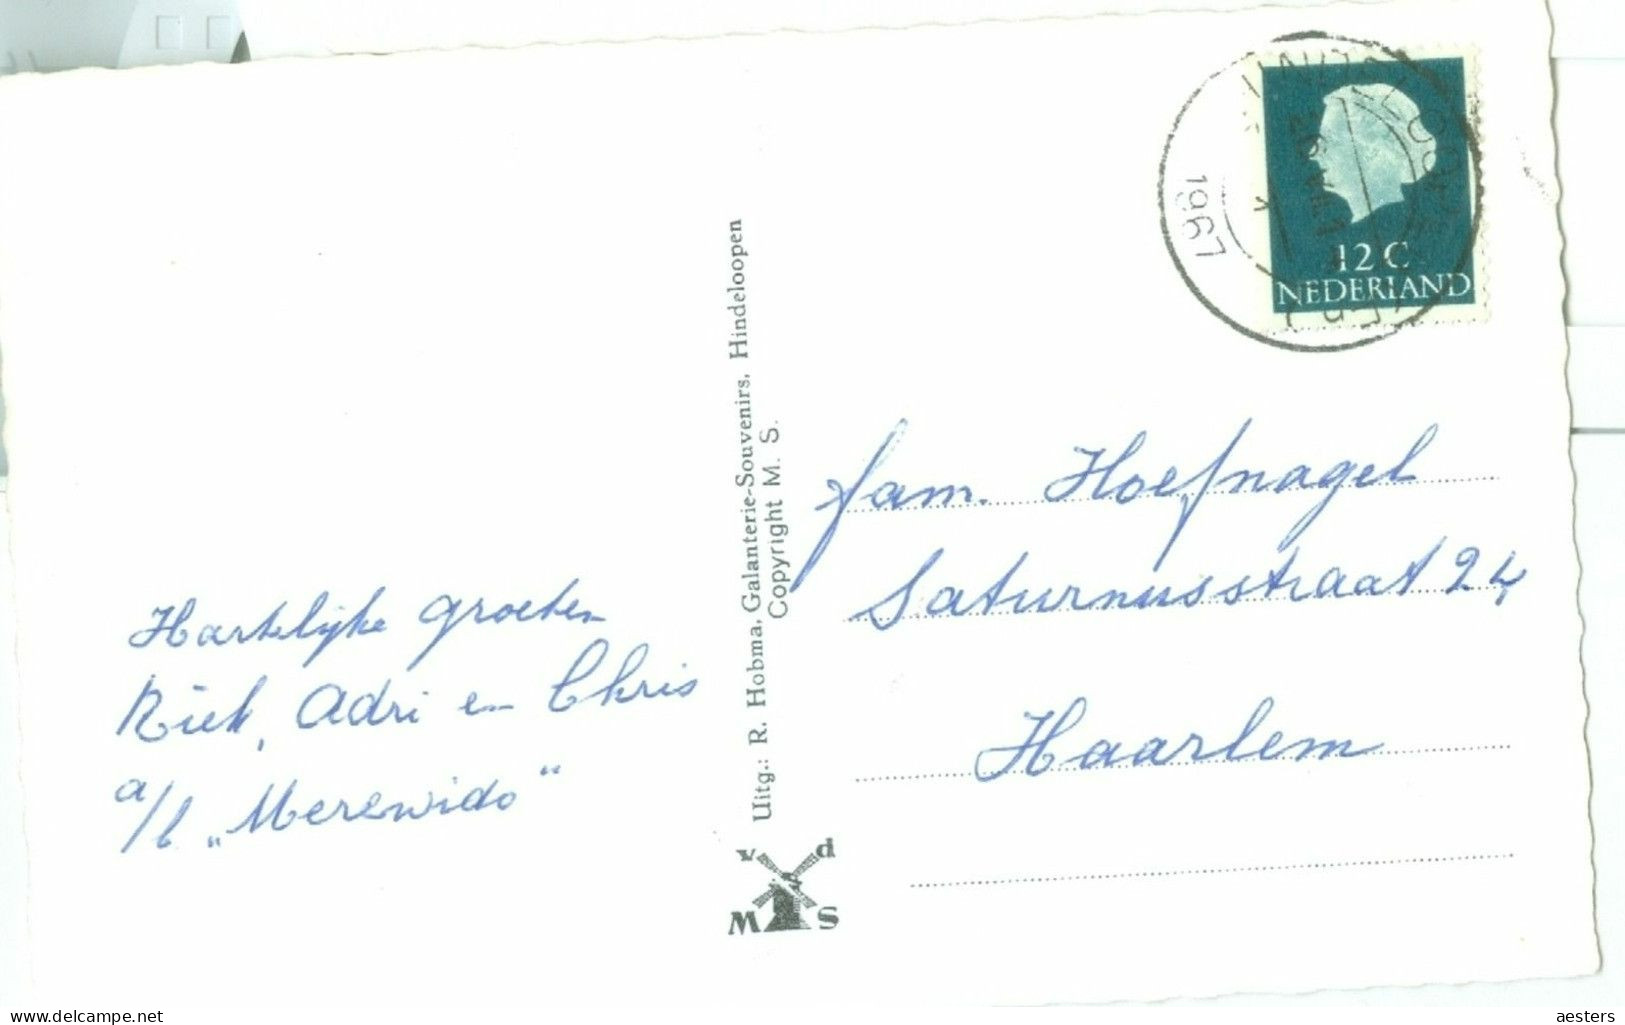 Hartelijke groeten
Riek, Adri en Chris
a/b „Merewido"
Uitg.: R. Hobma, Galanterie-Souvenirs, Hindeloopen
Copyright M. S.
v d
M S
1967
12 C
NEDERLAND
fam. Hoefnagel
Saturnusstraat 24
Haarlem
aesters